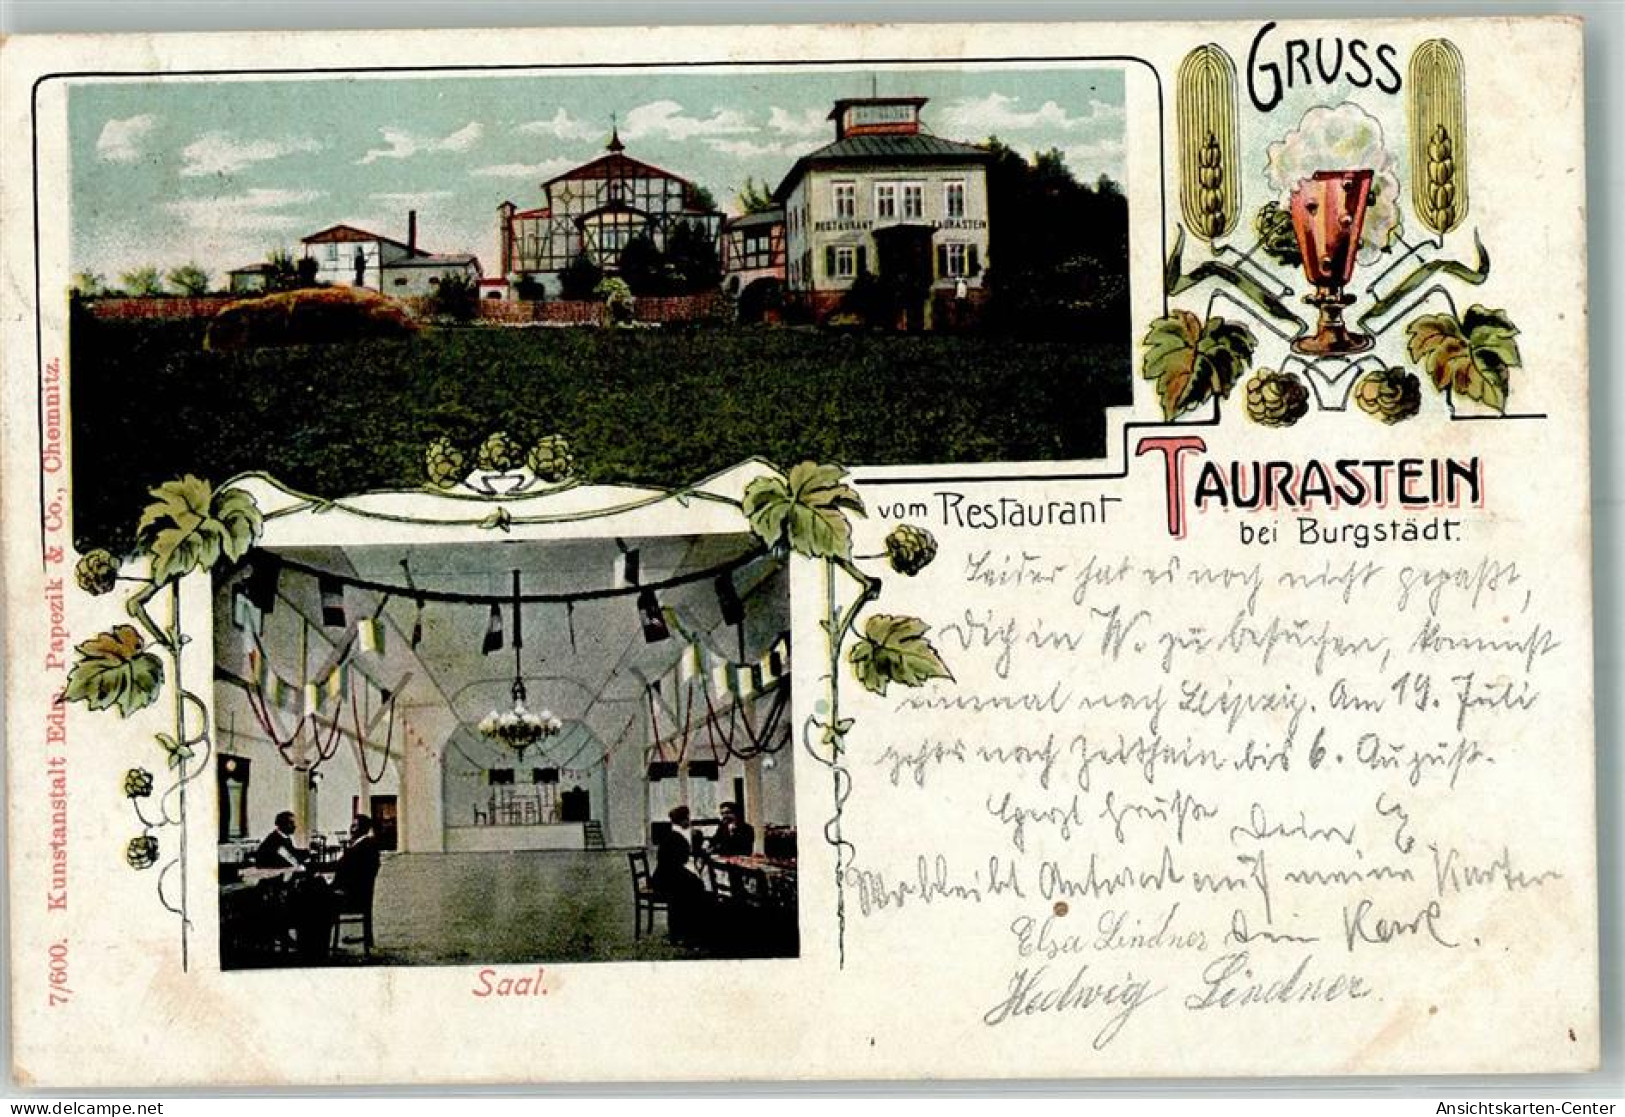 GRUSS
vom Restaurant
TAURASTEIN
bei Burgstädt.
RESTAURANT TAURASTEIN
Leider hat es noch nicht gepaßt,
Dich in W. zu besuchen, kommst
einmal nach Leipzig. Am 19. Juli
gehts nach Zeithain bis 6. August.
Herzl Grüße Dein
Wo bleibt Antwort auf meine Karten
Elsa Lindner Dein Karl.
Hedwig Lindner.
Saal.
7/600. Kunstanstalt Edm. Papezik & Co., Chemnitz.
Ansichtskarten-Center